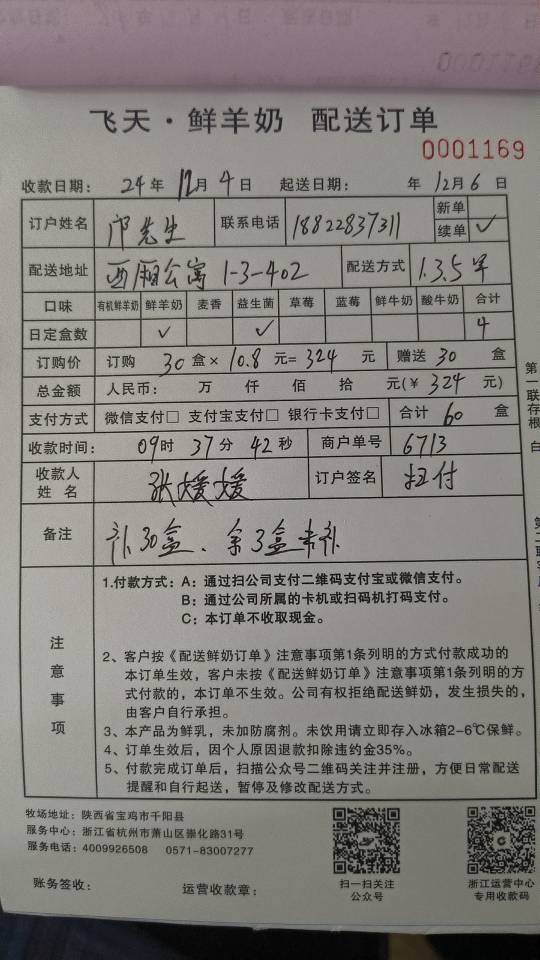 飞天·鲜羊奶 配送订单
0001169
收款日期: 24年 12月 4日 起送日期: 年 12月 6日
订户姓名 邝先生 联系电话 18822837311 新单
续单 ✓
配送地址 西厢公寓1-3-402 配送方式 1.3.5早
口味 有机鲜羊奶 鲜羊奶 麦香 益生菌 草莓 蓝莓 鲜牛奶 酸牛奶 合计
日定盒数 ✓ ✓ 4
订购价 订购 30 盒× 10.8 元= 324 元 赠送 30 盒
总金额 人民币: 万 仟 佰 拾 元(¥ 324 元)
支付方式 微信支付□ 支付宝支付□ 银行卡支付□ 合计 60 盒
收款时间: 09时 37分 42秒 商户单号 6713
收款人姓名 张媛媛 订户签名 扫付
备注 补30盒、余3盒未补
注意事项
1.付款方式: A: 通过扫公司支付二维码支付宝或微信支付。
B: 通过公司所属的卡机或扫码机打码支付。
C: 本订单不收取现金。
2、客户按《配送鲜奶订单》注意事项第1条列明的方式付款成功的
本订单生效，客户未按《配送鲜奶订单》注意事项第1条列明的方
式付款的，本订单不生效。公司有权拒绝配送鲜奶，发生损失的，
由客户自行承担。
3、本产品为鲜乳，未加防腐剂。未饮用请立即存入冰箱2-6℃保鲜。
4、订单生效后，因个人原因退款扣除违约金35%。
5、付款完成订单后，扫描公众号二维码关注并注册，方便日常配送
提醒和自行起送，暂停及修改配送方式。
牧场地址: 陕西省宝鸡市千阳县
服务中心: 浙江省杭州市萧山区崇化路31号
服务电话: 4009926508 0571-83007277
账务签收: 运营收款章:
扫一扫关注
公众号
浙江运营中心
专用收款码
第一联存根 白
第二联